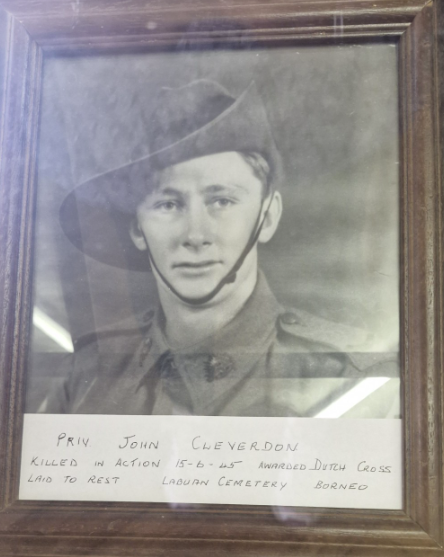 PRIV JOHN CLEVERDON
KILLED IN ACTION 15-6-45 AWARDED DUTCH CROSS
LAID TO REST LABUAN CEMETERY BORNEO